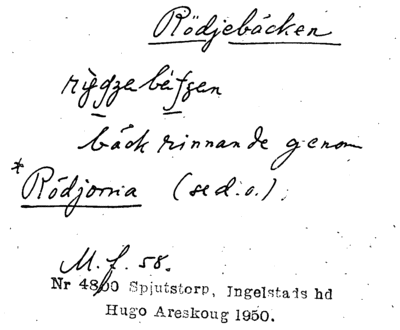 Rödjebäcken
bäck rinnande genom
*Rödjorna (se d.o.).
M. f. 58.
Nr 4800 Spjutstorp, Ingelstads hd
Hugo Areskoug 1950.